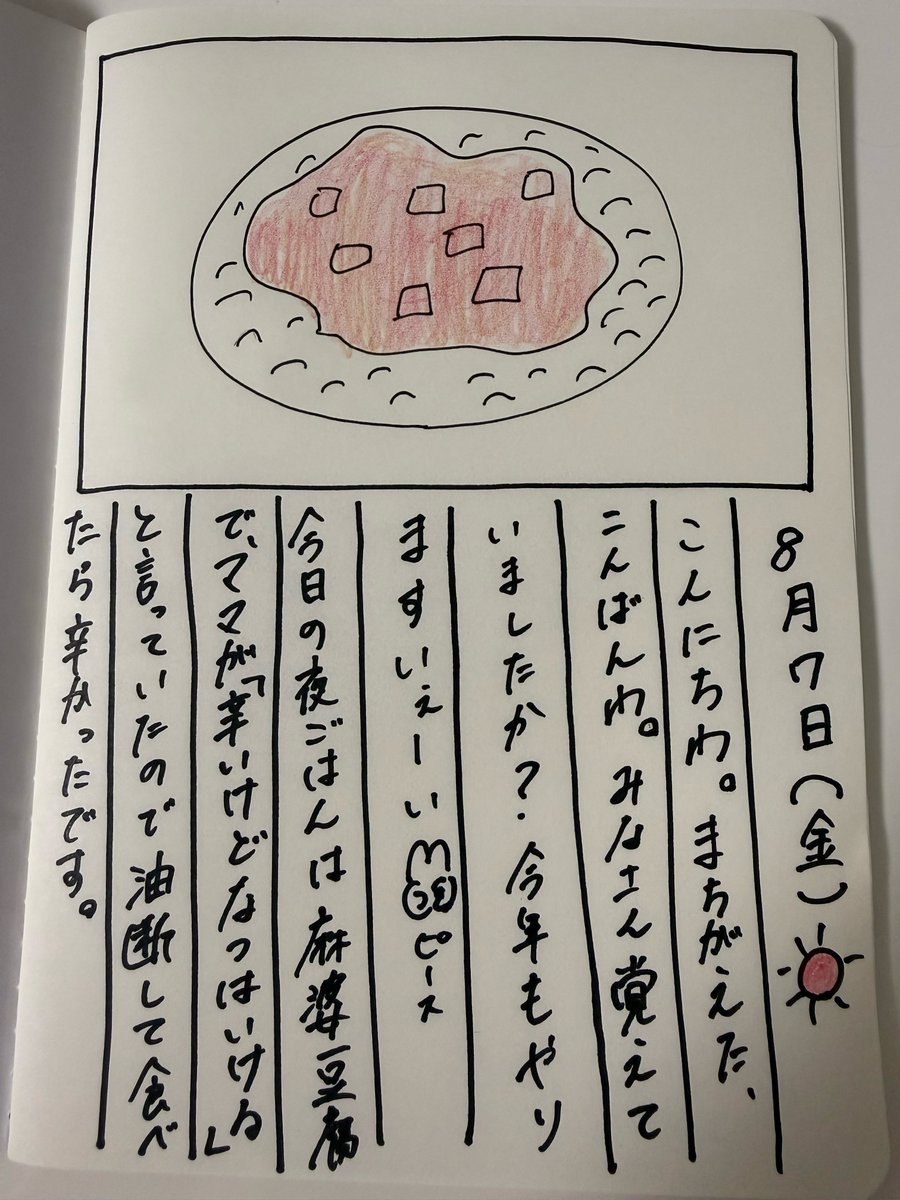 8月7日(金)
こんにちわ。まちがえた、
こんばんわ。みなさん覚えて
いましたか?今年もやり
ますいぇーいピース
今日の夜ごはんは麻婆豆腐
で、ママが「辛いけどなつはいける」
と言っていたので油断して食べ
たら辛かったです。